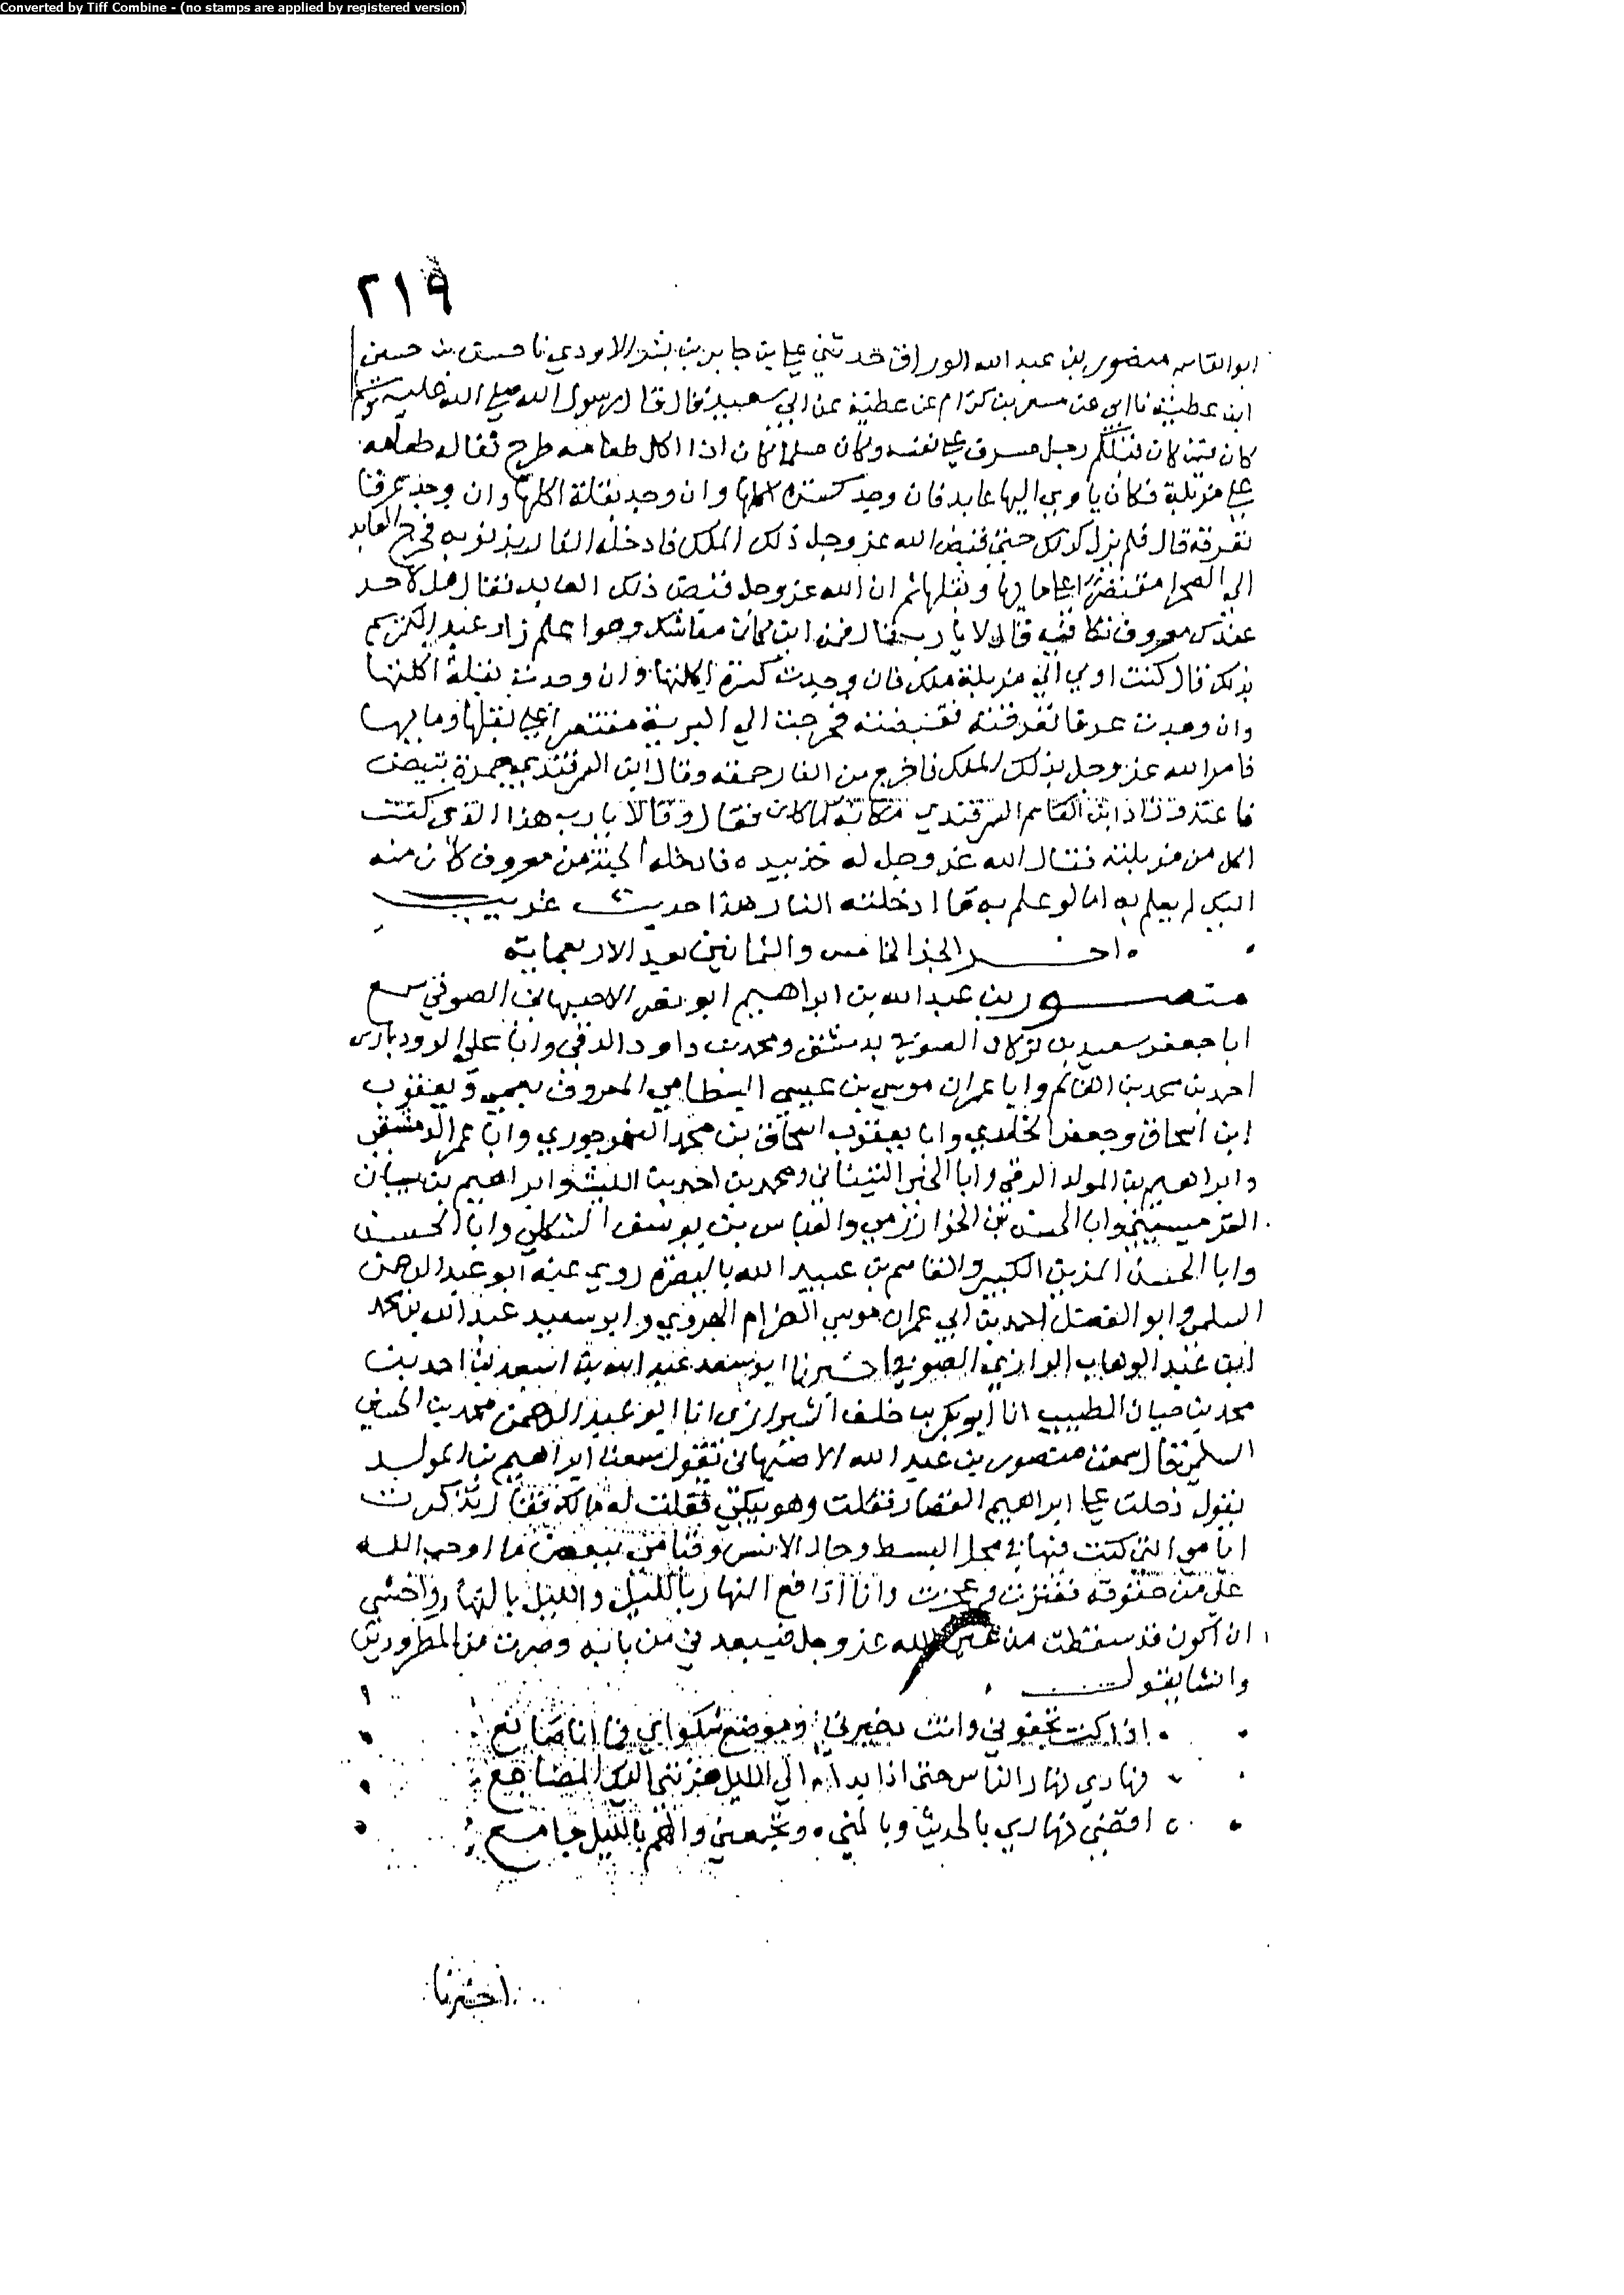 Converted by Tiff Combine - (no stamps are applied by registered version)
٢١٩
ابو القاسم منصور بن عبد الله الوراق حدثني علي بن جابر بن بشر الاودي نا حسن بن حسين
ابن عطية نا ابي عن مسعر بن كدام عن عطية عن ابي سعيد قال قال رسول الله صلي الله عليه وسلم
كان فيمن كان قبلكم رجل مسرف علي نفسه وكان مسلما كان اذا اكل طعامه طرح ثفاله طعامه
علي مزبلة فكان ياوي اليها عابد فان وجد كسرة اكلها وان وجد بقلة اكلها وان وجد عرقا
تعرقه قال فلم يزل كذلك حتي قبض الله عز وجل ذلك الملك فادخله النار بذنوبه فخرج العابد
الي الصحرا مقتصرا علي مايها وبقلها ثم ان الله عز وجل قبض ذلك العابد فقال هل لاحد
عندك معروف تكافيه قال لا يا رب قال فمن اين كان معاشك وهو اعلم زاد عبد الكريم
بذلك قال كنت اوي الي مزبلة ملك فان وجدت كسرة اكلتها وان وجدت بقلة اكلتها
وان وجدت عرقا تعرقته فقبضته فخرجت الي البرية مقتصرا علي بقلها ومايها
فامر الله عز وجل بذلك الملك فاخرج من النار حممة وقال ابن السمرقندي جمرة تنتفض
فاعيد زاد ابن القاسم السمرقندي مكانه كما كان فقال وقالا يا رب هذا الذي كنت
اكل من مزبلته فقال الله عز وجل له خذ بيده فادخله الجنة من معروف كان منه
اليك لم يعلم به اما لو علم به ما ادخلته النار هذا حديث غريب
اخر الجز الخامس والثمانين بعد الاربعماية
منصور بن عبد الله بن ابراهيم ابو نصر الاصبهاني الصوفي سمع
ابا جعفر سعيد بن تركان الصوفي بدمشق ومحمد بن داود الدقي وابا علي الرودباري
احمد بن محمد بن القاسم وابا عمران موسي بن عيسي البسطامي المعروف بعمي ويعقوب
ابن اسحاق وجعفر الخلدي وابا يعقوب اسحاق بن محمد النهرجوري وابا عمر الدمشقي
وابراهيم بن المولد الرقي وابا الخير التيناتي ومحمد بن احمد بن الليث وابراهيم بن شيبان
القرميسيني وابا الحسن بن الخوارزمي والعباس بن يوسف الشكلي وابا الحسن
وابا الحسن المزين الكبير والقاسم بن عبيد الله بالبصرة روي عنه ابو عبد الرحمن
السلمي وابو الفضل احمد بن ابي عمران موسي الصرام الهروي وابو سعيد عبد الله بن محمد
ابن عبد الوهاب الرازي الصوفي اخبرنا ابو سعد عبد الله بن اسعد بن احمد بن
محمد بن حيان الطبيب انا ابو بكر بن خلف الشيرازي انا ابو عبد الرحمن محمد بن الحسين
السلمي قال سمعت منصور بن عبد الله الاصبهاني يقول سمعت ابراهيم بن المولد
يقول دخلت علي ابراهيم القصار فقلت وهو يبكي فقلت له ما لك فقال تذكرت
ايامي التي كنت فيها في محل البسط وحال الانس وقيامي ببعض ما اوجب الله
علي من حقوقه ففترت وعجزت وانا ادافع النهار بالليل والليل بالنهار واخشي
ان اكون قد سقطت من عين الله عز وجل فيبعدني من بابه وصرت من المطرودين
وانشا يقول
اذا كنت تجفوني وانت ذخيرتي وموضع شكواي فما انا صانع
نهاري نهار الناس حتي اذا بدا لي الليل هزتني اليك المضاجع
اقضي نهاري بالحديث وبالمني وتجمعني والهم بالليل جامع
اخبرنا